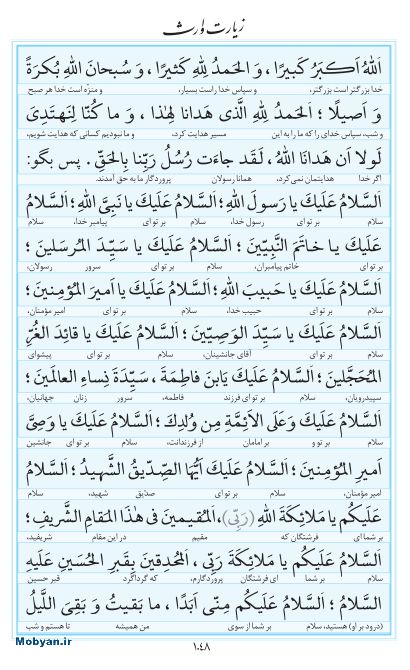 زیارت وارث
اَللهُ اَکبَرُ کَبیرًا ، وَ الحَمدُ لِلّٰهِ کَثیرًا ، وَ سُبحانَ اللهِ بُکرَةً
خدا بزرگتر است بزرگتر، و سپاس خدا راست بسیار، و منزّه است خدا هر صبح
وَ اَصیلًا ؛ اَلحَمدُ لِلّٰهِ الَّذی هَدانا لِهٰذا ، وَ ما کُنّا لِنَهتَدِیَ
و شب، سپاس خدای را که ما را به این مسیر هدایت کرد، و ما نبودیم کسانی که هدایت شویم،
لَولا اَن هَدانَا اللهُ ، لَقَد جاءَت رُسُلُ رَبِّنا بِالحَقِّ . پس بگو:
اگر خدا هدایتمان نمی کرد، همانا رسولان پروردگار ما به حق آمدند.
اَلسَّلامُ عَلَیکَ یا رَسولَ اللهِ ؛ اَلسَّلامُ عَلَیکَ یا نَبِیَّ اللهِ ؛ اَلسَّلامُ
سلام بر تو ای رسول خدا، سلام بر تو ای پیامبر خدا، سلام
عَلَیکَ یا خاتَمَ النَّبِیّینَ ؛ اَلسَّلامُ عَلَیکَ یا سَیِّدَ المُرسَلینَ ؛
بر تو ای خاتم پیامبران، سلام بر تو ای سرور رسولان،
اَلسَّلامُ عَلَیکَ یا حَبیبَ اللهِ ؛ اَلسَّلامُ عَلَیکَ یا اَمیرَ المُؤمِنینَ ؛
سلام بر تو ای حبیب خدا، سلام بر تو ای امیر مؤمنان،
اَلسَّلامُ عَلَیکَ یا سَیِّدَ الوَصِیّینَ ؛ اَلسَّلامُ عَلَیکَ یا قائِدَ الغُرِّ
سلام بر تو ای آقای جانشینان، سلام بر تو ای پیشوای
المُحَجَّلینَ ؛ اَلسَّلامُ عَلَیکَ یَابنَ فاطِمَةَ ، سَیِّدَةِ نِساءِ العالَمینَ ؛
سپیدرویان، سلام بر تو ای فرزند فاطمه، سرور زنان جهانیان،
اَلسَّلامُ عَلَیکَ وَ عَلَی الاَئِمَّةِ مِن وُلدِکَ ؛ اَلسَّلامُ عَلَیکَ یا وَصِیَّ
سلام بر تو و بر امامان از فرزندانت، سلام بر تو ای جانشین
اَمیرِ المُؤمِنینَ ؛ اَلسَّلامُ عَلَیکَ اَیُّهَا الصِّدّیقُ الشَّهیدُ ؛ اَلسَّلامُ
امیر مؤمنان، سلام بر تو ای صدّیق شهید، سلام
عَلَیکُم یا مَلائِکَةَ اللهِ (رَبّی) ، اَلمُقیمینَ فی هٰذَا المَقامِ الشَّریفِ ؛
بر شما ای فرشتگان که مقیم در این مقام شریفید،
اَلسَّلامُ عَلَیکُم یا مَلائِکَةَ رَبّی ، اَلمُحدِقینَ بِقَبرِ الحُسَینِ عَلَیهِ
سلام بر شما ای فرشتگان پروردگارم، که گرداگرد قبر حسین
السَّلامُ ؛ اَلسَّلامُ عَلَیکُم مِنّی اَبَدًا ، ما بَقیتُ وَ بَقِیَ اللَّیلُ
(درود بر او) هستید، سلام بر شما از سوی من همیشه تا هستم و شب
Mobyan.ir
۱۰۴۸